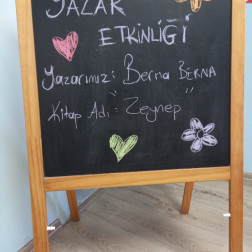 YAZAR
ETKİNLİĞİ
Yazarımız: Berna BERNA
Kitap Adı = Zeynep